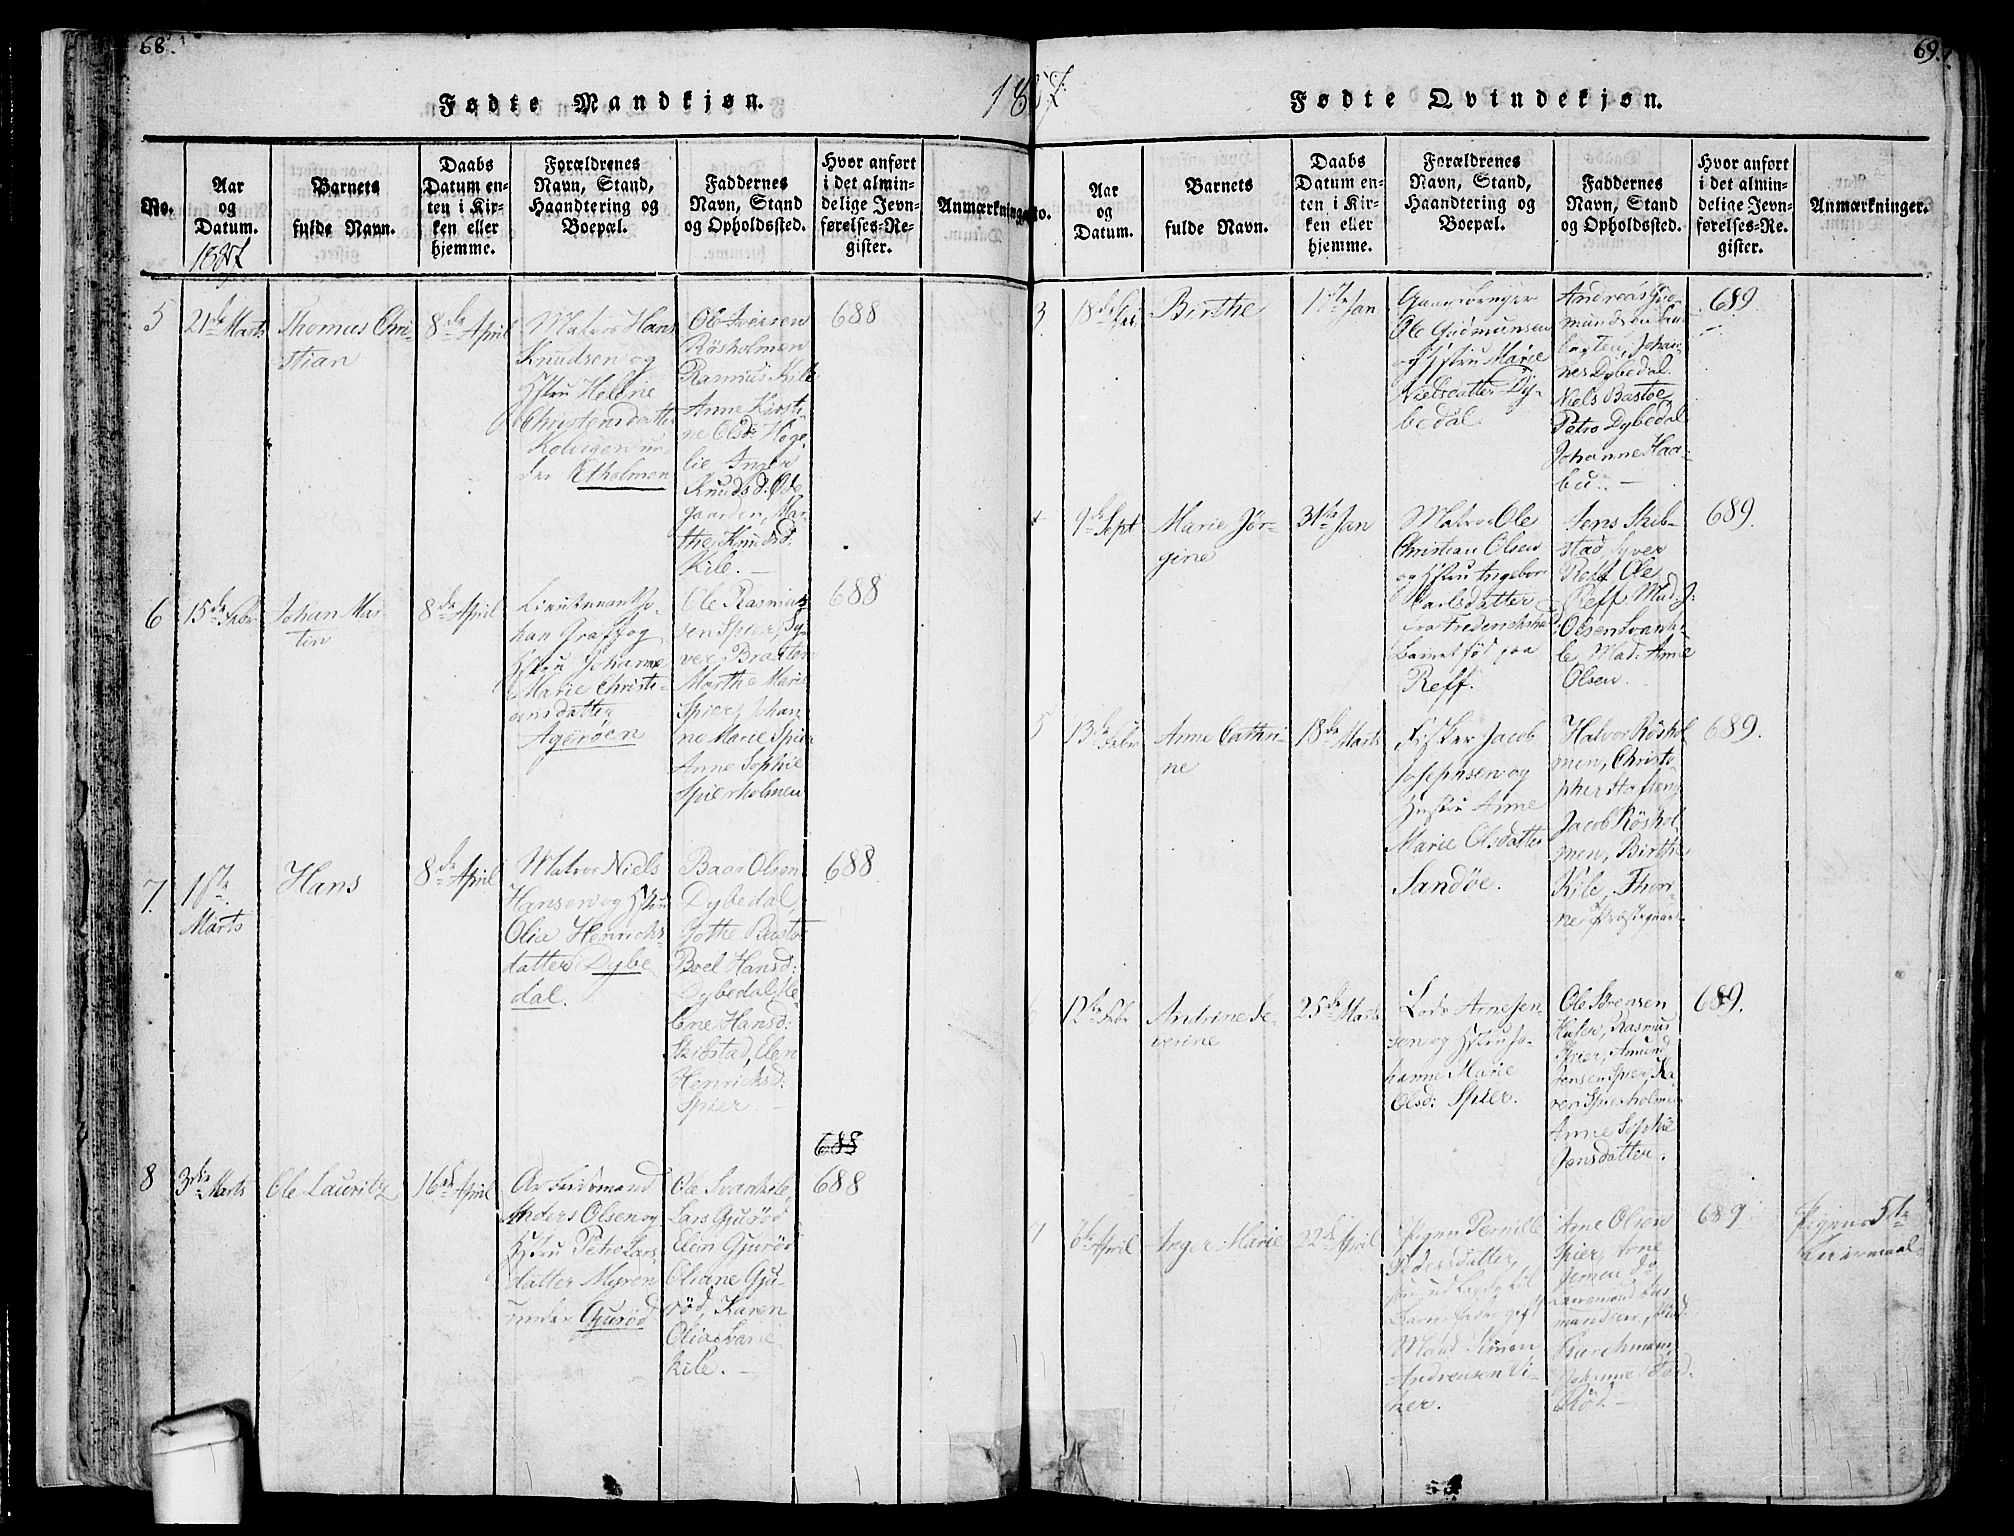 68.
Fødte Mandkjøn.
No.
Aar
og
Datum.
Barnets
fulde Navn.
Daabs
Datum en-
ten i Kir-
ken eller
hjemme.
Forældrenes
Navn, Stand,
Haandtering og
Boepæl.
Faddernes
Navn, Stand
og Opholdssted.
Hvor anført
i det almin-
delige Jevn-
førelses-Re-
gister.
Anmærkninger
5
21de Marts
Thomas Chri-
stian
8de April
Matros Hans
Knudsen og
Hstru Helene
Christensdatter
under Etholmen
Ole Iversen
Røsholmen
Rasmus Kile
Anne Kirsti-
ne Olsd: Hoge-
lie, Inger
Knudsd: Øde
gaarden, Mar-
the Knudsd:
Kile. —
688
6
15de Febr
Johan Mar-
tin
8de April
Lieutnant Jo-
han Graff og
Hstru Johanne
Marie Christi-
ensdatter
Agerøen
Ole Rasmus-
sen Spier, Sy-
ver Bratten
Marthe Marie
Spier, Johan-
ne Marie Spier
Anne Sophie
Spierholmen
688
7.
1ste
Marts
Hans
8de April
Matros Niels
Hansen og Hstru
Olia Henrichs-
datter Dybe
dal.
Baar Olsen
Dybedal,
Gothe Bastø
Boel Hansd:
Dybedal, He-
lene Hansd:
Skibstad, Elen
Henrichsd:
Spier —
688
8
3die Marts
Ole Lauritz
16de April
Anders Olsen og
Hstru Petro Lars-
datter Myren
under Gjurød
Ole Svankile,
Lars Gjurød
Elen Gjurød
Oliane Gju-
rød, Karen
Olia Svane
kile. —
688
688
69.
Fødte Qvindekjøn.
No.
Aar
og
Datum.
Barnets
fulde Navn.
Daabs
Datum en-
ten i Kir-
ken eller
hjemme.
Forældrenes
Navn, Stand,
Haandtering og
Boepæl.
Faddernes
Navn, Stand
og Opholdssted.
Hvor anført
i det almin-
delige Jevn-
førelses-Re-
gister.
Anmærkninger.
3
Birthe
1ste Jan
Ole Gudmunsen
og Hstru Marie
Nielsdatter Dy-
bedal
Andreas Gud-
mundsen
Johan-
nes Dybedal
Niels Bastøe
Petro Dybedal
Johanne Haa-
bu. —
689
9de Sept
Marie Jør-
gine
31te Jan
Matros Ole
Christian Olsen
og Hstru Ingebor
Carlsdatter
fra Frederichstad
Barnet fød paa
Reff.
Jens Skib-
stad, Syver
Reff, Ole
Reff, Mad: J:
Olsen Svanki-
le, Mad: Anne
Olsen.
689.
5
13de Febr
Anne Cathri-
ne
18de Marts
Fisker Jacob
Josephsen og
Hustru Anne
Marie Olsdatter
Sandøe.
Halvor Røshol
men, Christo-
pher
Jacob Røshol-
men, Birthe
Kile, Thori-
ne
689.
12te Febr
Andrine Se-
verine
25de Marts
Lods Arne Jen-
sen og Hstru Jo-
hanne Marie
Olsd: Spier.
Ole Sørensen
Rasmus
Spier, Amund
Jensen Spier, Ka-
ren Spierholmen
Anne Sophie
Jensdatter.
689.
6te April
Inger Marie
22de April
Pigen Pernille
Pedersdatter,
Simon
Andreasen Vi-
ker.
Arne Olsen
Spier, Arne
Rød. —
689
Pigens 5te
Leiermaal